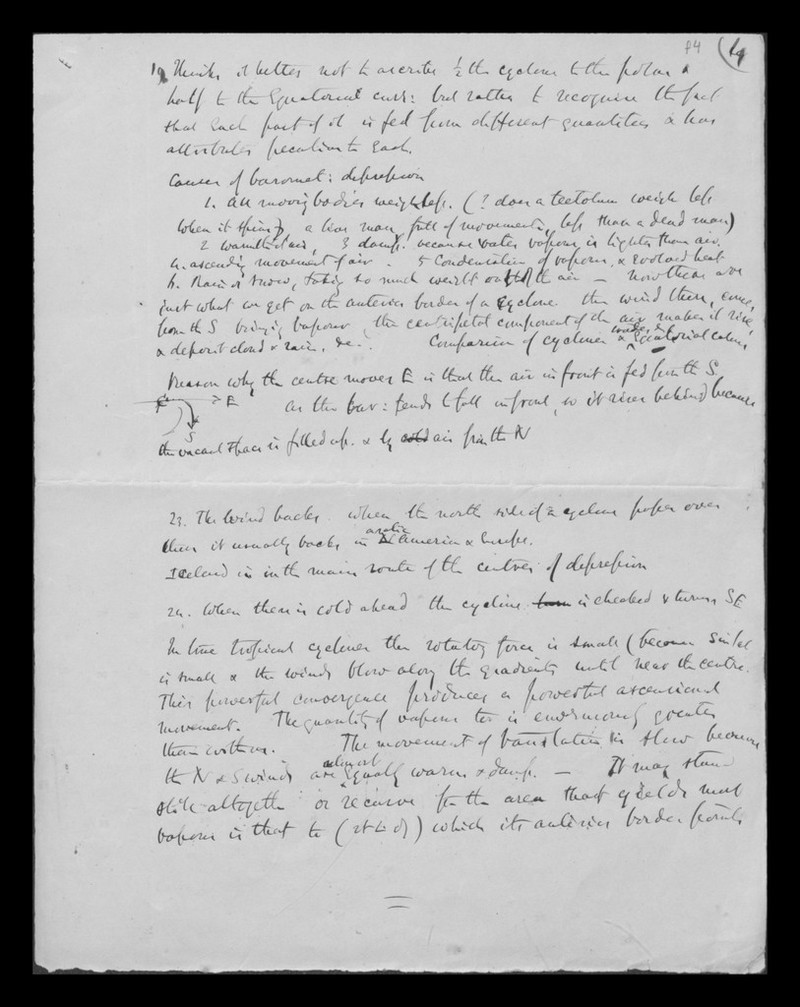 P4 (4
19 Thinks it better not to ascribe ½ the cyclone to the polar &
half to the Equatorial curr: but rather to recognise the fact
that each part of it is fed from different quantities & has
attributes peculiar to each.
Causes of baromet: depression
1. All moving bodies weigh less. (? does a teetotum weigh less
when it spins, a live man, full of movements, less than a dead man)
2 warmth of air, 3 damp. because water vapour is lighter than air.
4. ascending movement of air. 5 Condensation of vapour, & evolved heat
6. Rain or snow, taking so much weight out of the air — now these are
just what we get on the anterior border of a cyclone. the wind there, comes
from the S bringing vapour, the centripetal component of the air makes it rise,
& deposit cloud & rain, &c. Comparison of cyclones & Equatorial calms
Reason why the centre moves E is that the air in front is fed from the S.
E as the bar: tends to fall in front, so it rises behind because
S
the vacant space is filled up. & by cold air from the N
23. The wind backs. when the north side of a cyclone passes over
thus it usually backs in arctic America & Europe.
Iceland is in the main route of the centres of depression
24. When there is cold ahead the cyclone turns is checked & turns SE
In true tropical cyclones the rotatory force is small (because Sin lat
is small & the winds blow along the gradients until near the centre.
This powerful convergence produces a powerful ascensional
movement. The quantity of vapour too is enormously greater
than with us. The movement of translation is slow because
the N & S winds are almost equally warm & damp. — It may stand
still altogether or recurve for the area that yields most
vapour is that to (rt to df) which its anterior border points